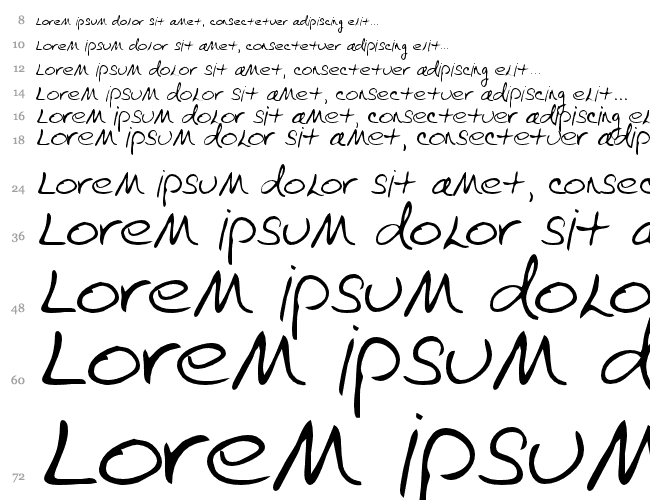 8 Lorem ipsum dolor sit amet, consectetuer adipiscing elit...
10 Lorem ipsum dolor sit amet, consectetuer adipiscing elit...
12 Lorem ipsum dolor sit amet, consectetuer adipiscing elit...
14 Lorem ipsum dolor sit amet, consectetuer adipiscing elit...
16 Lorem ipsum dolor sit amet, consectetuer adipiscing el
18 Lorem ipsum dolor sit amet, consectetuer adip
24 Lorem ipsum dolor sit amet, consec
36 Lorem ipsum dolor sit a
48 Lorem ipsum dolo
60 Lorem ipsum d
72 Lorem ipsum